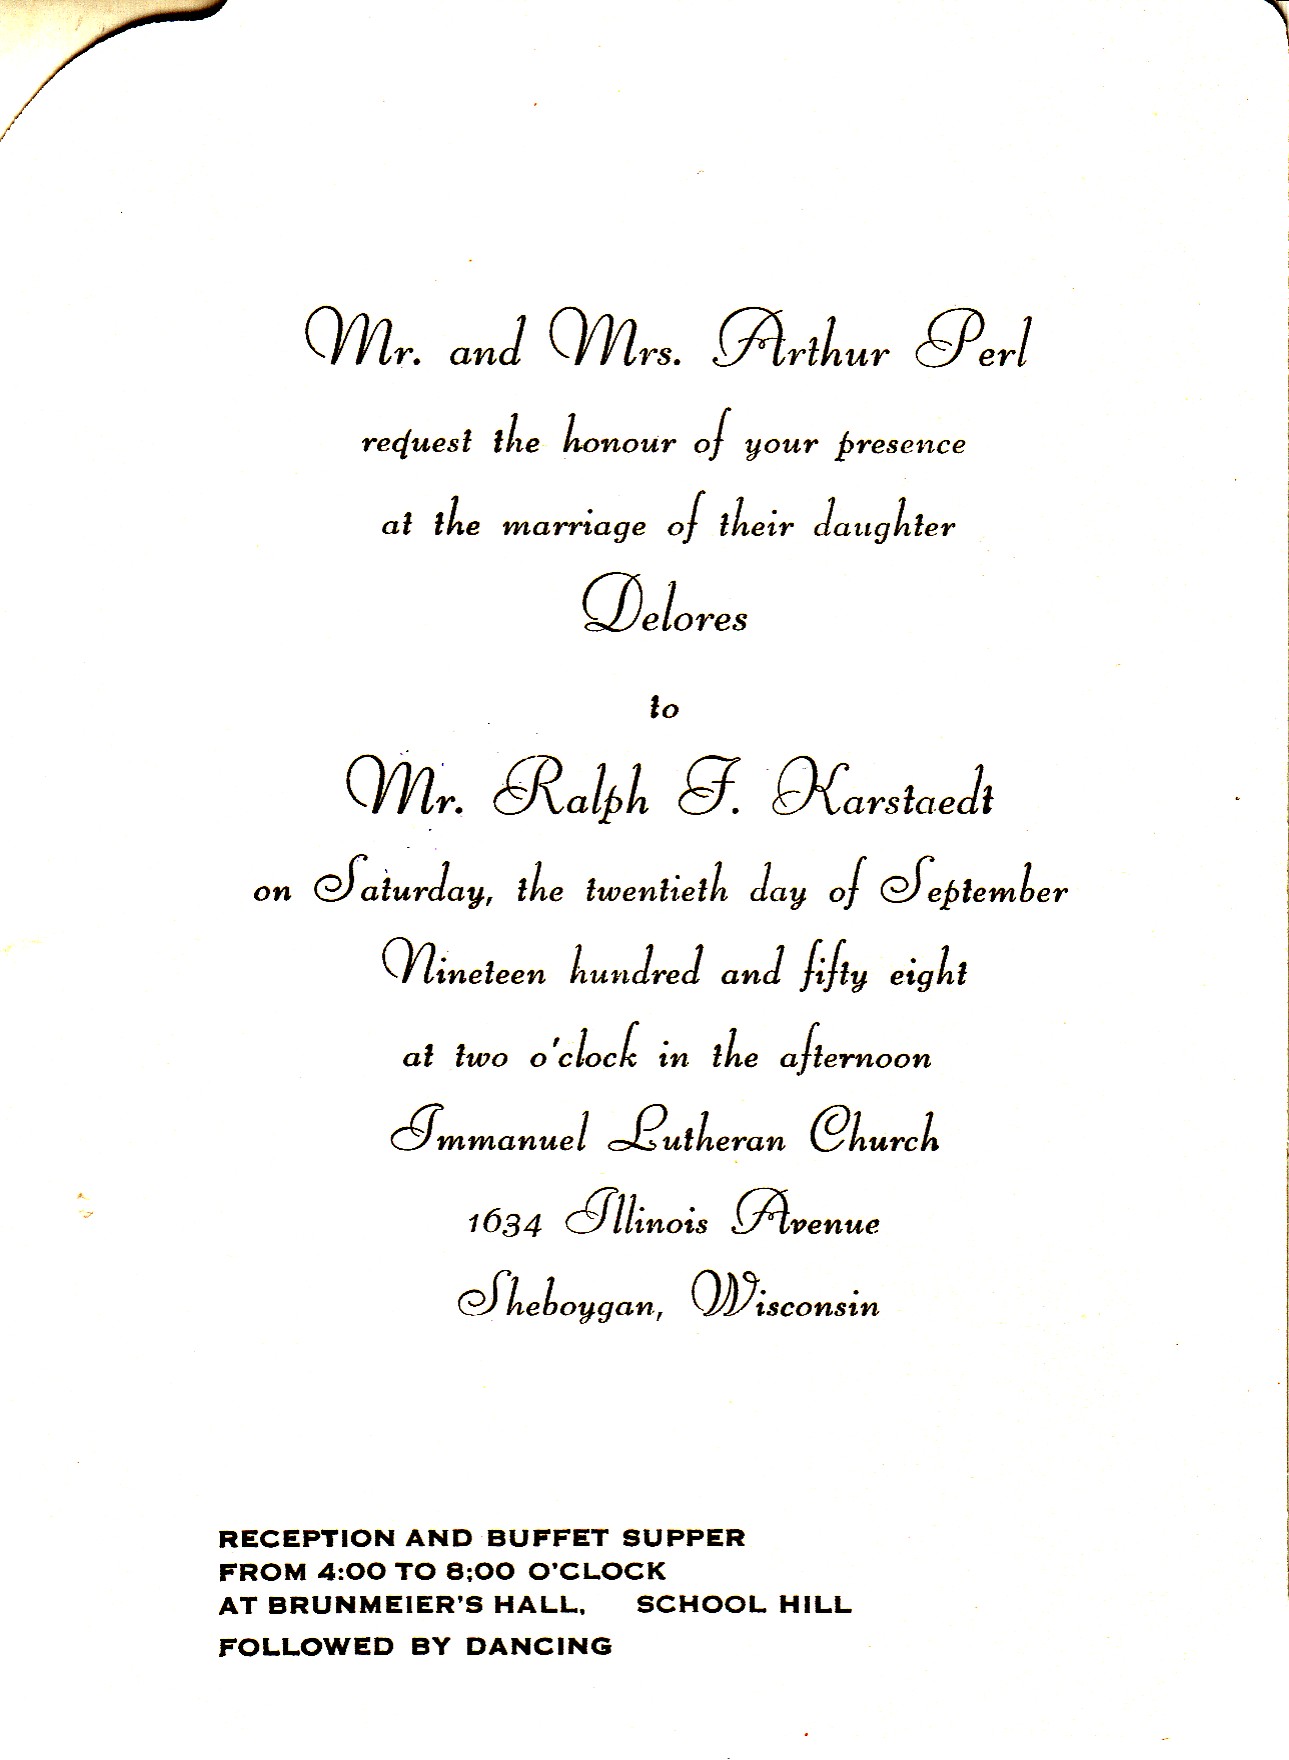 Mr. and Mrs. Arthur Perl
request the honour of your presence
at the marriage of their daughter
Delores
to
Mr. Ralph F. Karstaedt
on Saturday, the twentieth day of September
Nineteen hundred and fifty eight
at two o'clock in the afternoon
Immanuel Lutheran Church
1634 Illinois Avenue
Sheboygan, Wisconsin
RECEPTION AND BUFFET SUPPER
FROM 4:00 TO 8:00 O'CLOCK
AT BRUNMEIER'S HALL, SCHOOL HILL
FOLLOWED BY DANCING